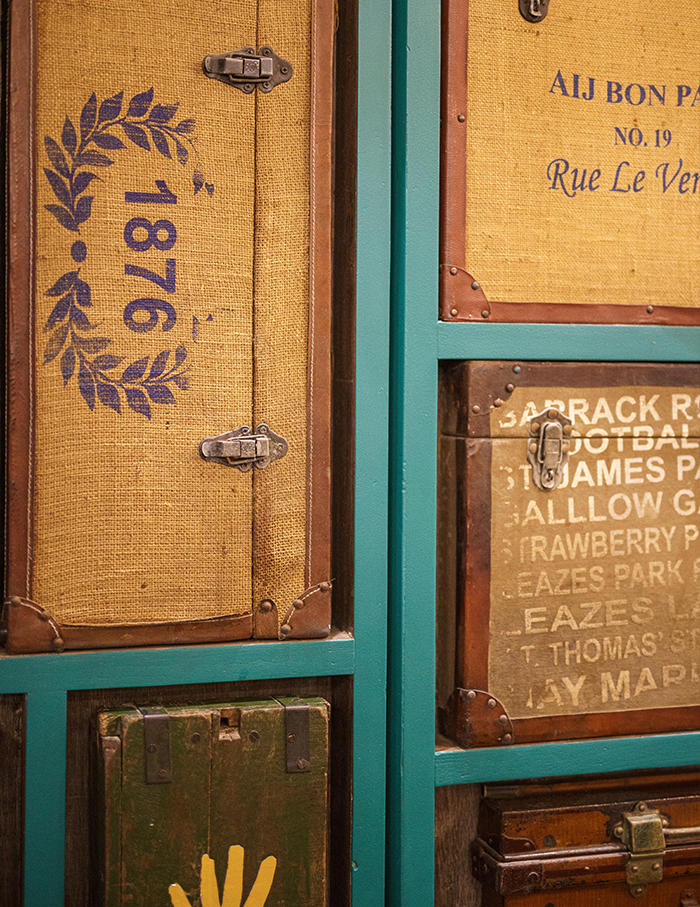 1876
AIJ BON PA
NO. 19
Rue Le Ver
BARRACK R
FOOTBAL
ST JAMES P
GALLLOW G
STRAWBERRY P
LEAZES PARK
LEAZES L
ST. THOMAS' ST
HAY MAR